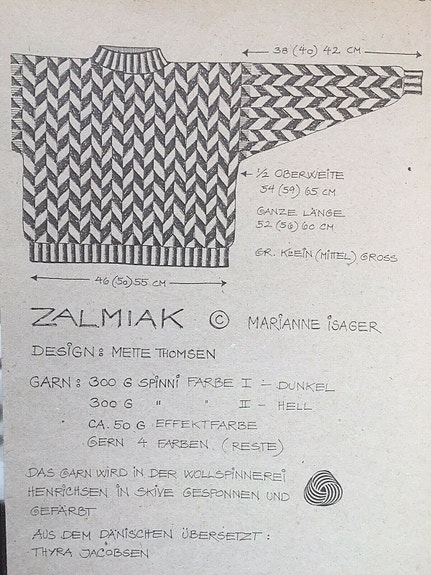 38 (40) 42 CM
½ OBERWEITE
54 (59) 65 CM
GANZE LÄNGE
52 (56) 60 CM
GR. KLEIN (MITTEL) GROSS
46 (50) 55 CM
ZALMIAK © MARIANNE ISAGER
DESIGN: METTE THOMSEN
GARN: 300 G SPINNI FARBE I - DUNKEL
300 G " " II - HELL
CA. 50 G EFFEKTFARBE
GERN 4 FARBEN. (RESTE)
DAS GARN WIRD IN DER WOLLSPINNEREI
HENRICHSEN IN SKIVE GESPONNEN UND
GEFÄRBT
AUS DEM DÄNISCHEN ÜBERSETZT:
THYRA JACOBSEN